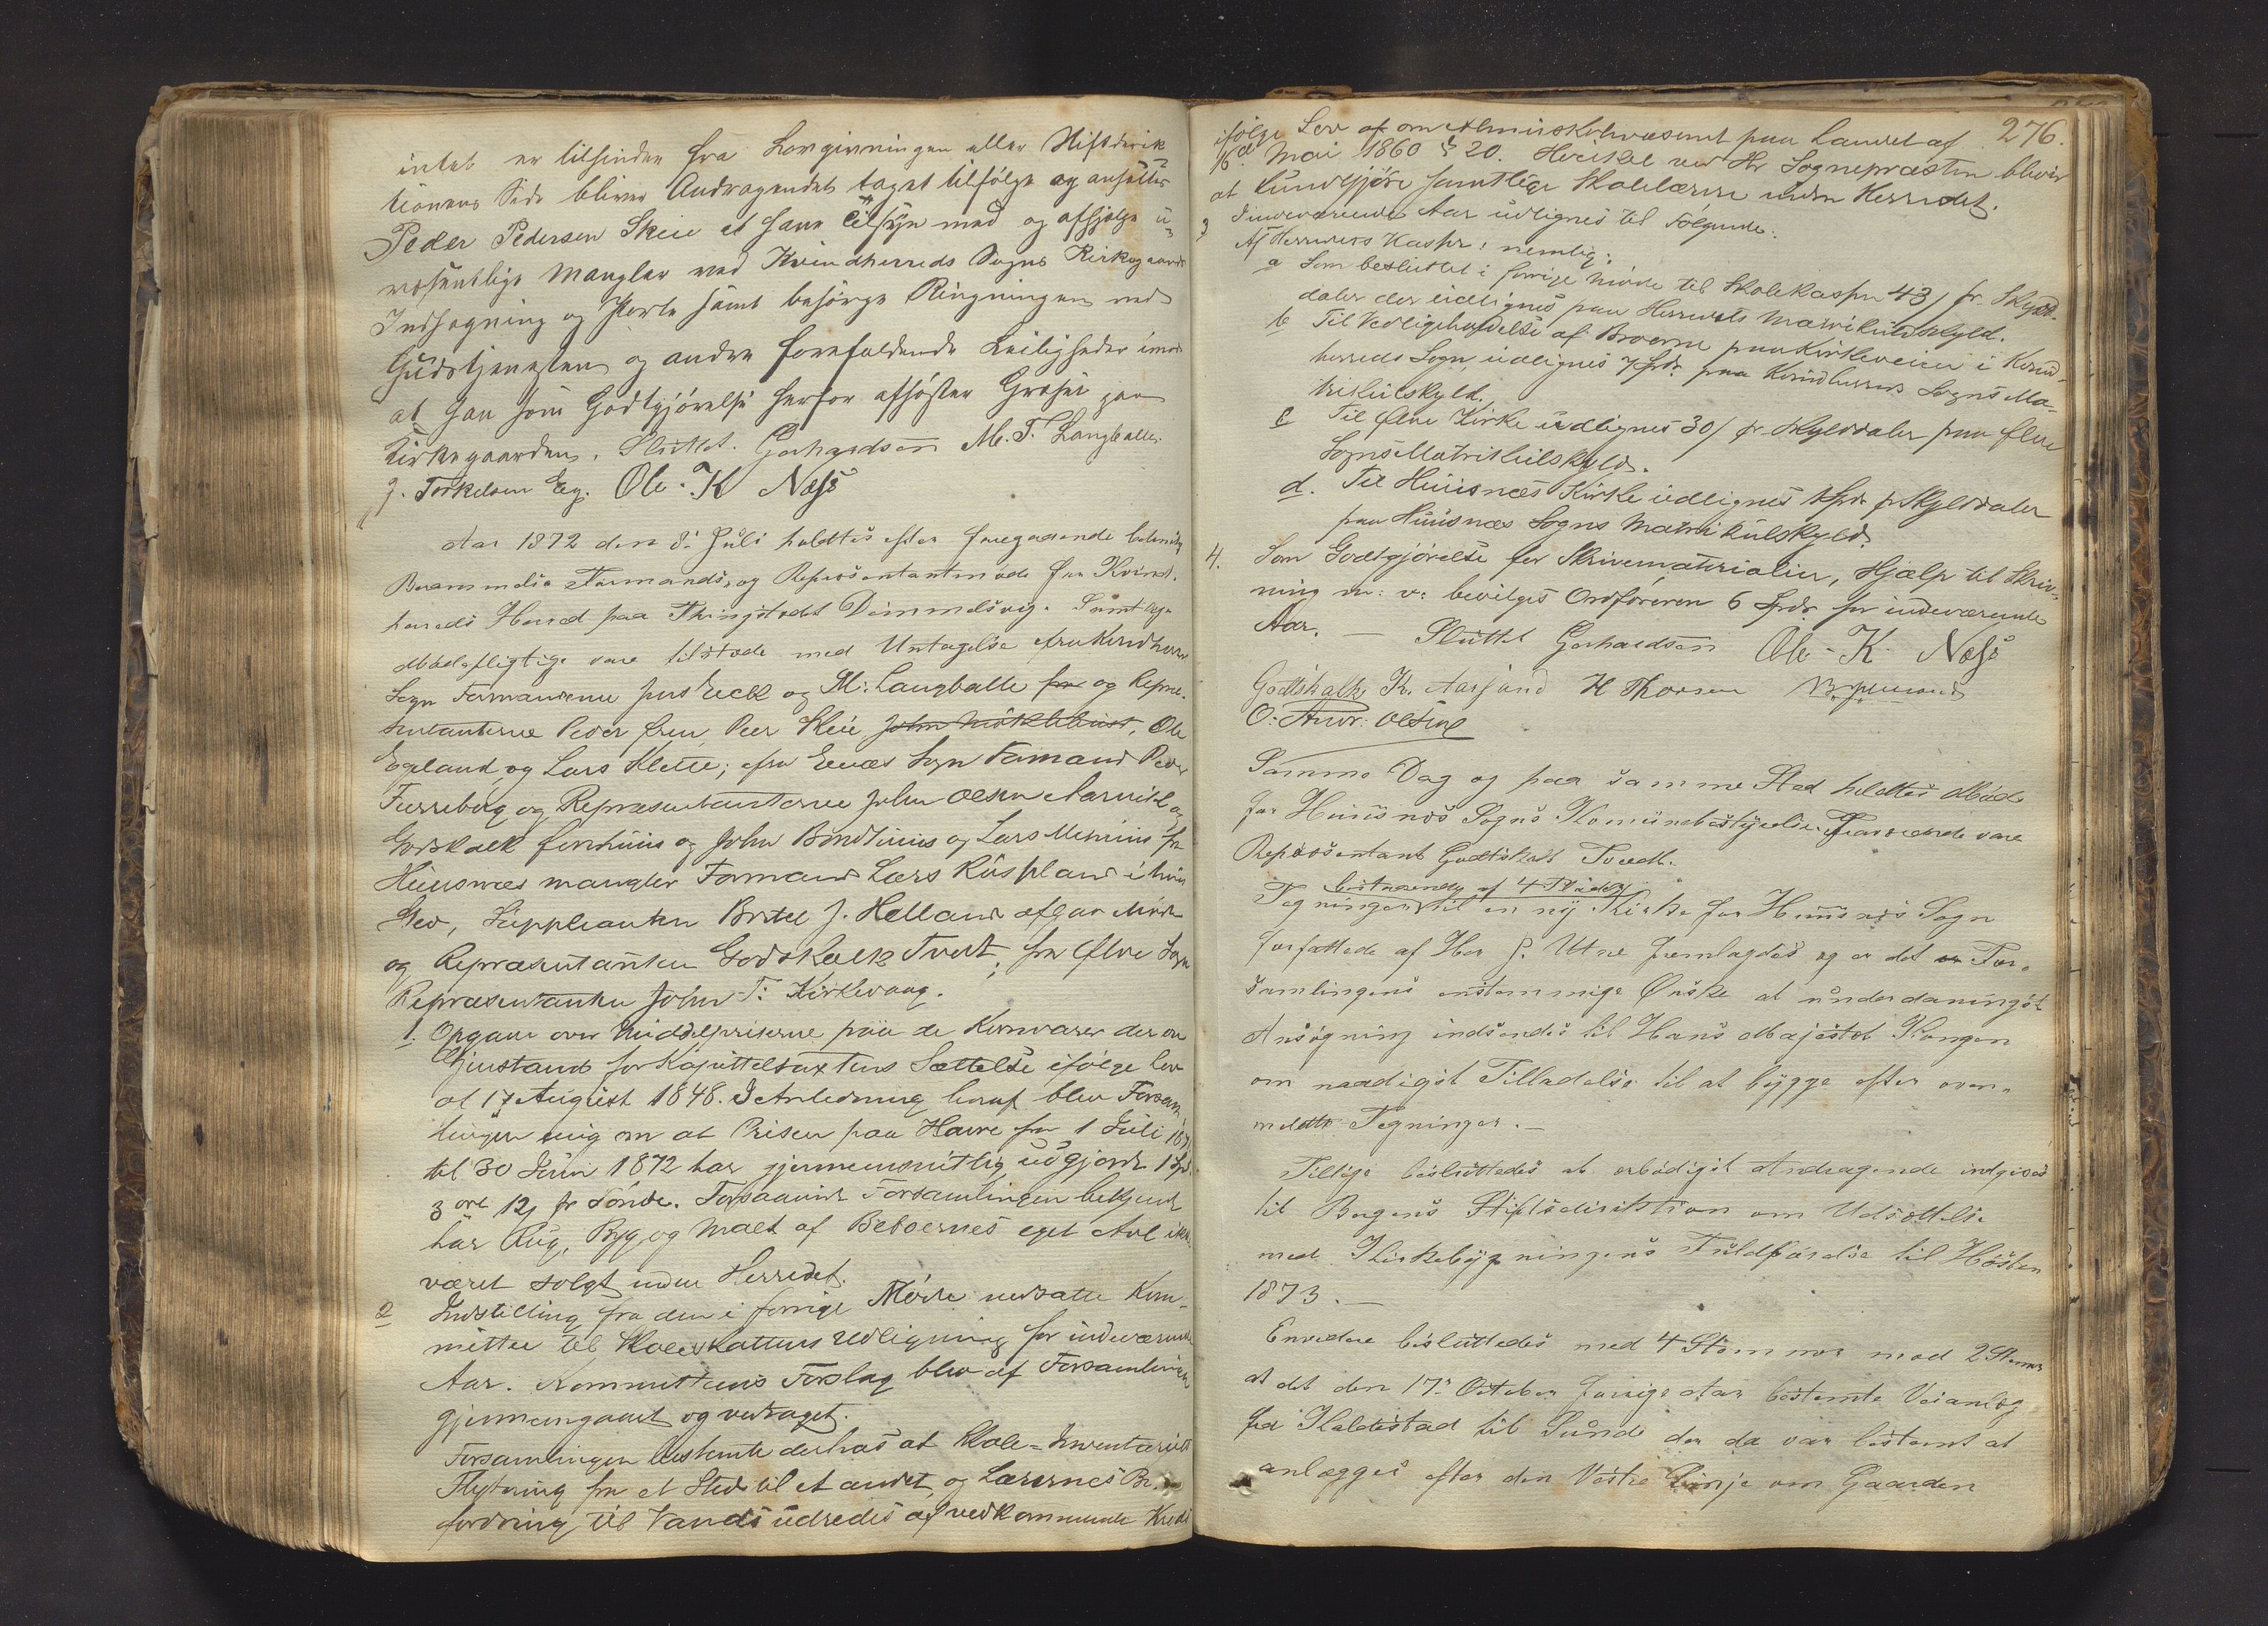 intet er tilhinder fra Lovgivningen eller Stiftsdirek
tionens Side bliver Andragendet taget tilfølge og ansættes
Peder Pedersen Skeie at have Tilsyn med og afhjelpe u-
væsentlige Mangler ved Kvindherreds Sogns Kirkegaards
Indhegning og Porte samt besørge Ringningen ved
Gudstjenesten og andre forefaldende Leiligheder imod
at han som Godtgjørelse herfor afhøster Græsset paa
Kirkegaarden. Sluttet. Gerhardsen M. T. Langballe.
J. Torkelsen Eeg. Ole. K Næss
Aar 1872 den 8. Juli holdtes efter foregaaende lovlig
Berammelse Formands, og Repræsentantmøde for Kvind-
herreds Herred paa Thingstedet Dimmelsvig. Samtlige
Mødepligtige vare tilstede med Undtagelse fra Kvindherreds
Sogn Formændene Just Eeck og M: Langballe og Repræ-
sentanterne Peder Peer Skeie John Møklebust, Ole
Egeland og Lars Klette; fra Enæs Sogn Formand Peder
Furreberg og Repræsentanterne John Olsen Aarvik og
Godskalk og John Bondhuus og Lars fra
Huusnæs mangler Formand Lars i hvis
Sted, Suppleanten Britel J. Helland afgav Møde
og Repræsentanten Godskalk Tvedt, fra Ølve Sogn
Repræsentanten John T: Kirkevaag.
1. Opgave over Middelpriserne paa de Kornvarer der er
Gjenstand for Kapitteltaxtens Sættelse ifølge Lov
af 17 August 1848. I Anledning heraf blev Forsam
lingen enig om at Prisen paa Havre fra 1 Juli 1871
til 30 Juni 1872 har gjennemsnitlig udgjort 1 Spd.
3 ort 12 s pr Tønde. Forsaavidt Forsamlingen bekjendt
har Rug, Byg og Malt af Beboernes eget Avl ikke
været solgt inden Herredet.
2 Indstilling fra den i forrige Møde nedsatte Kom-
mittee til Skoleskattens Udligning for indeværende
Aar. Kommitteens Forslag blev af Forsamlingen
gjennemgaaet og vedtaget.
Forsamlingen bestemte derhos at Skole-Inventariets
Flytning fra et Sted til et andet, og Lærernes Be-
fordring til Vands udredes af vedkommende Kreds
276.
ifølge Lov af om Almueskolevæsenet paa Landet af
16de Mai 1860 § 20. Hvilket ved Hr. Sognepræsten bliver
at kundgjøre samtlige Skolelærere inden Herredet.
3 Indeværende Aar udlignes til Følgende:
Af Herredets Kasse: nemlig:
a Som besluttet i forrige Møde til Skolekassen 43 s pr. Skyld-
daler der udlignes paa Herredets Matrikulskyld.
b Til Vedligeholdelse af Broerne paa Kirkeveien i Kvind-
herreds Sogn, udlignes 7 Spdr. paa Kvindherreds Sogns Ma-
trikulskyld.
c Til Ølve Kirke udlignes 30 s pr. Skylddaler paa Ølve
Sogns Matrikulskyld.
d. Til Huusnæs Kirke udlignes 1 Spd. pr Skylddaler
paa Huusnæs Sogns Matrikulskyld.
4. Som Godtgjørelse for Skrivematerialier, Hjælp til Skriv-
ning m: v: bevilges Ordføreren 6 Spdr. for indeværende
Aar. — Sluttet Gerhardsen Ole - K - Næss
Godtskalk K. Aarsand H Thorsen
O: Andr: Ølfine
Samme Dag og paa samme Sted holdtes Møde
for Huusnæs Sogns Komunebestyrelse. Fraværende vare
Repræsentant Godtskalk Tvedt.
bestaaende af 4 Blade
Tegninger til en ny Kirke for Huusnæs Sogn
forfattede af Her J. Utne fremlagdes og er det For-
samlingens enstemmige Ønske at underdanigst
Ansøgning indsendes til Hans Majestæt Kongen
om naadigst Tilladelse til at bygge efter oven-
meldte Tegninger. —
Tillige besluttedes at ærbødigst Andragende indgives
til Bergens Stiftsdirektion om Udsættelse
med Kirkebygningens Fuldførelse til Høsten
1873. —
Envidere besluttedes med 4 Stemmer mod 2 Stemmer
at det den 17. October forrige Aar bestemte Veianlæg
fra Haldestad til Sunde der da var bestemt at
anlægges efter den Vestre Linje om Gaarden